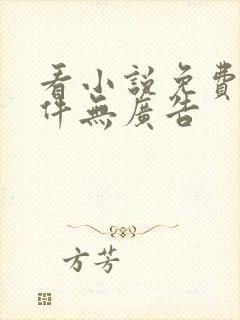 看小說免費
件無廣告
方芳